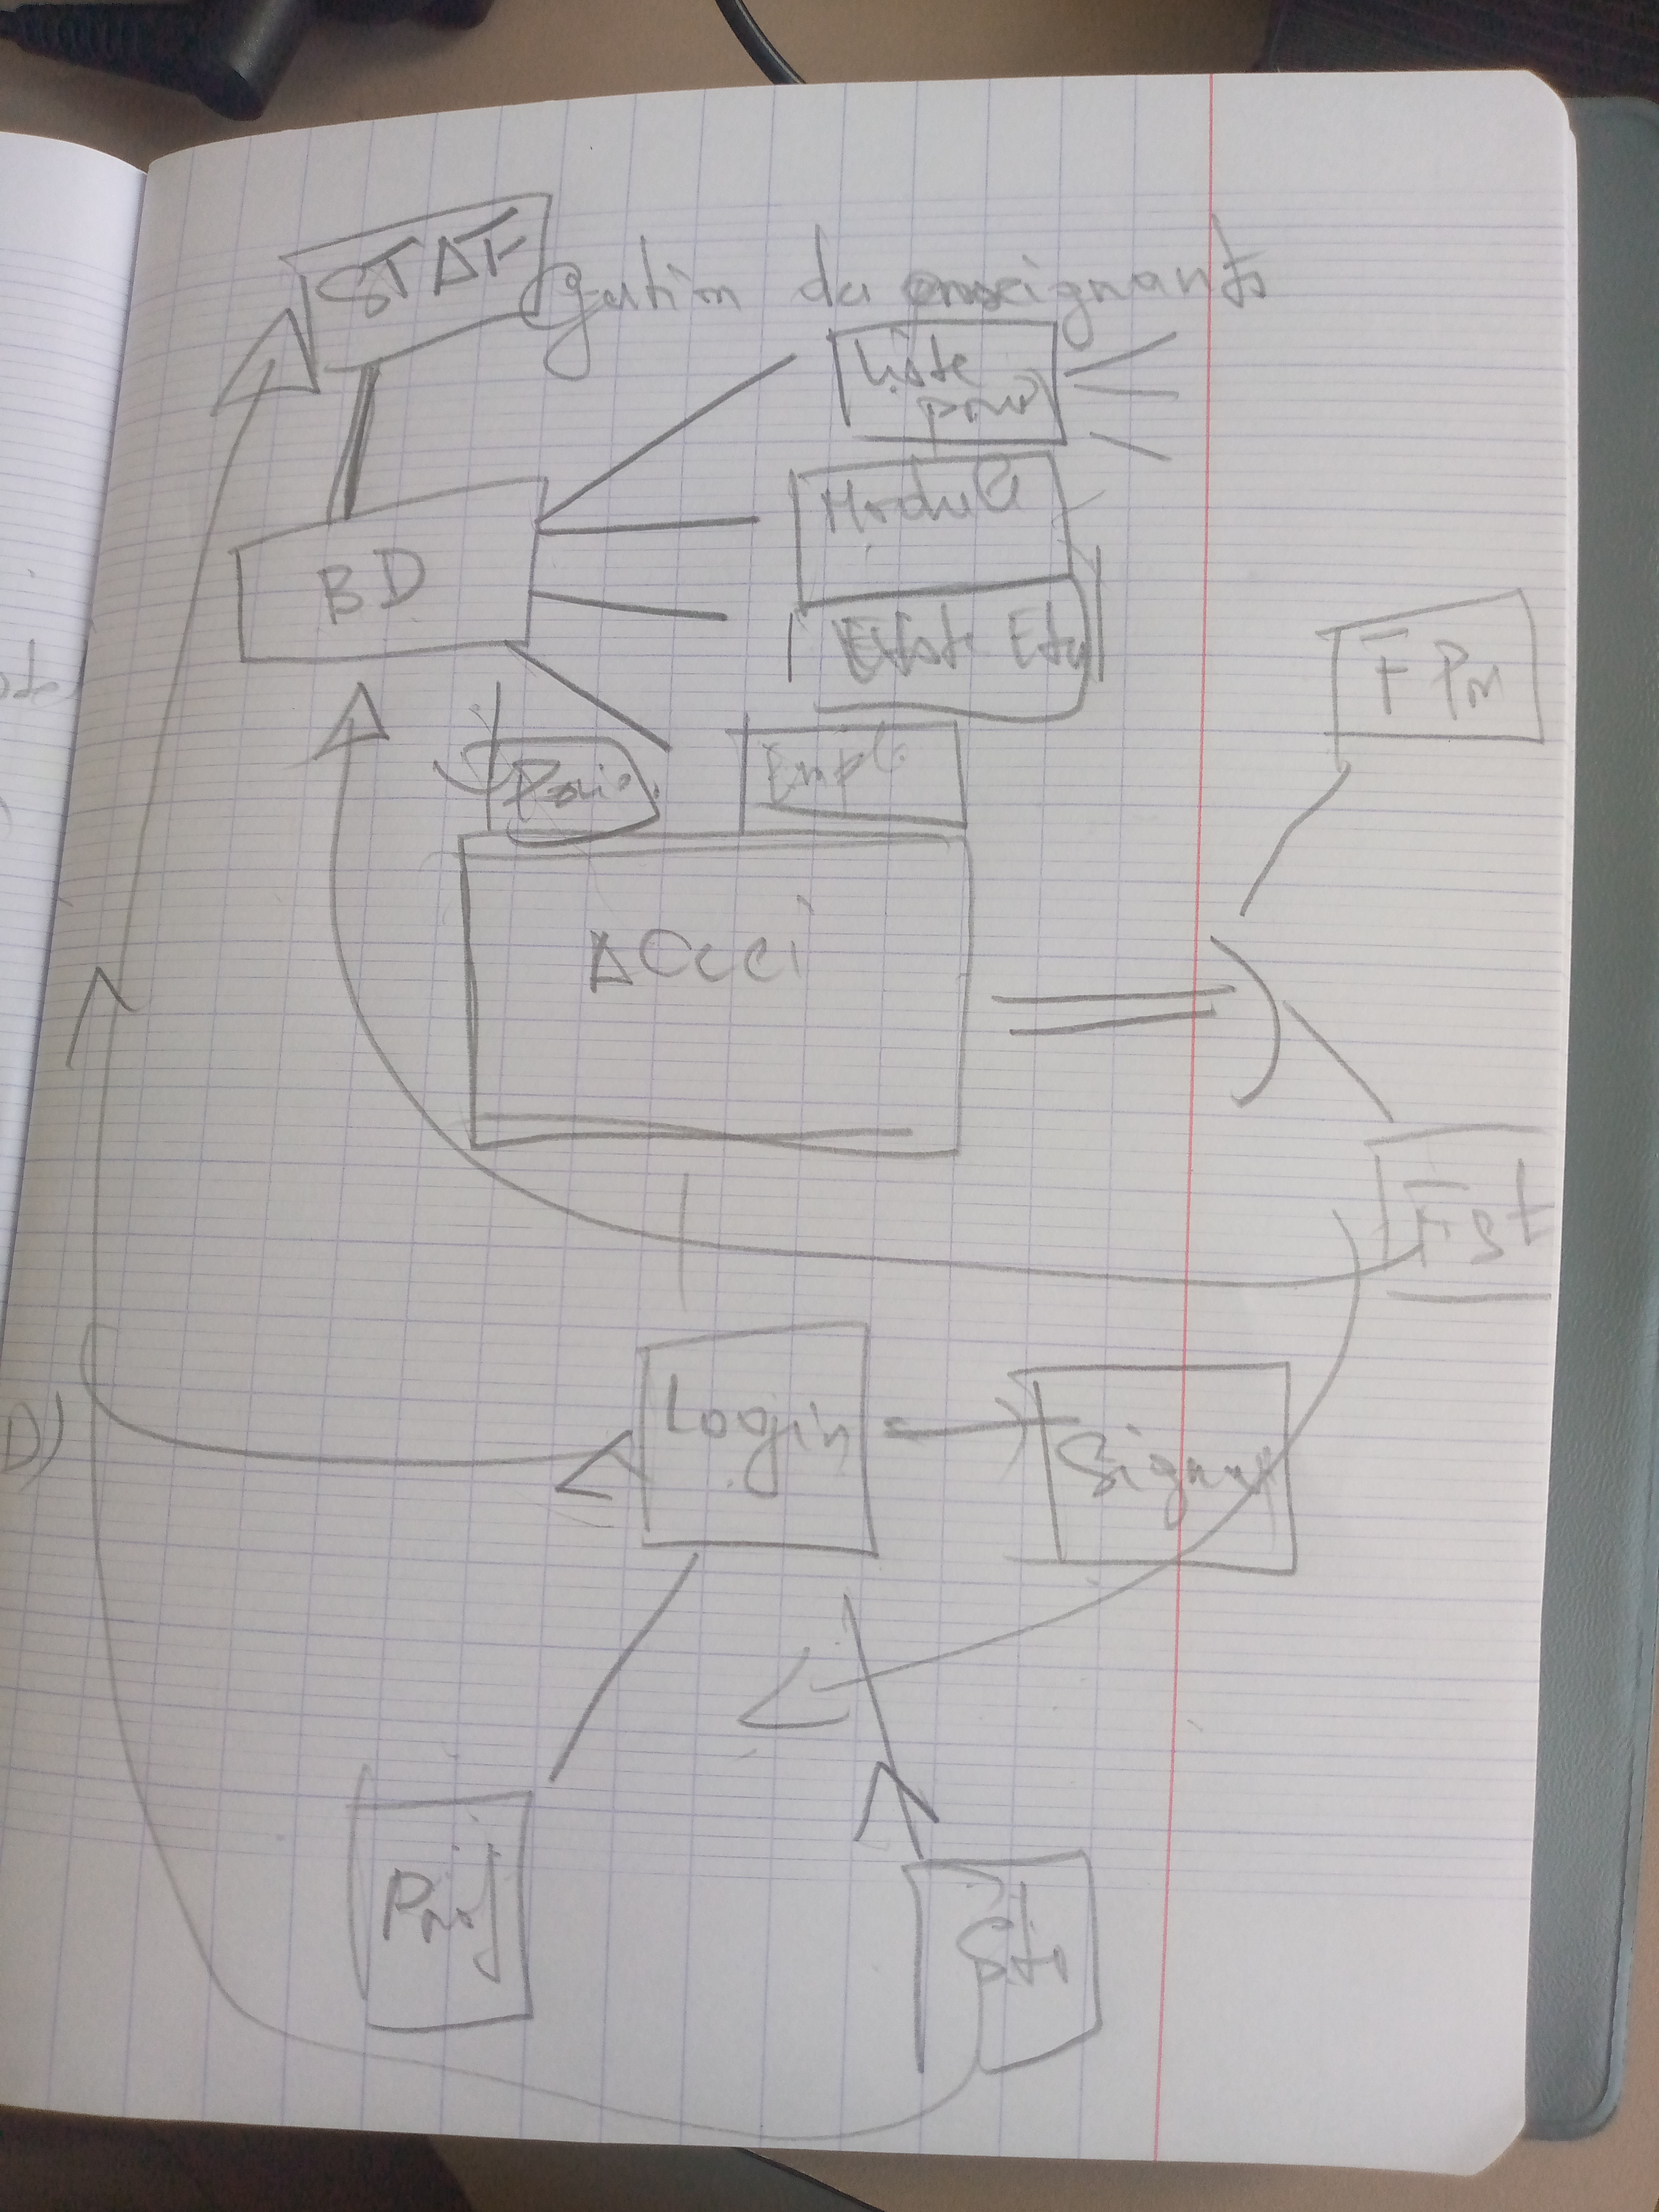 STAF
gestion des enseignants
Liste
prof
Module
BD
Liste Etu
F Pr
Empl
ACCCi
F St
Login
Signup
Prof
St